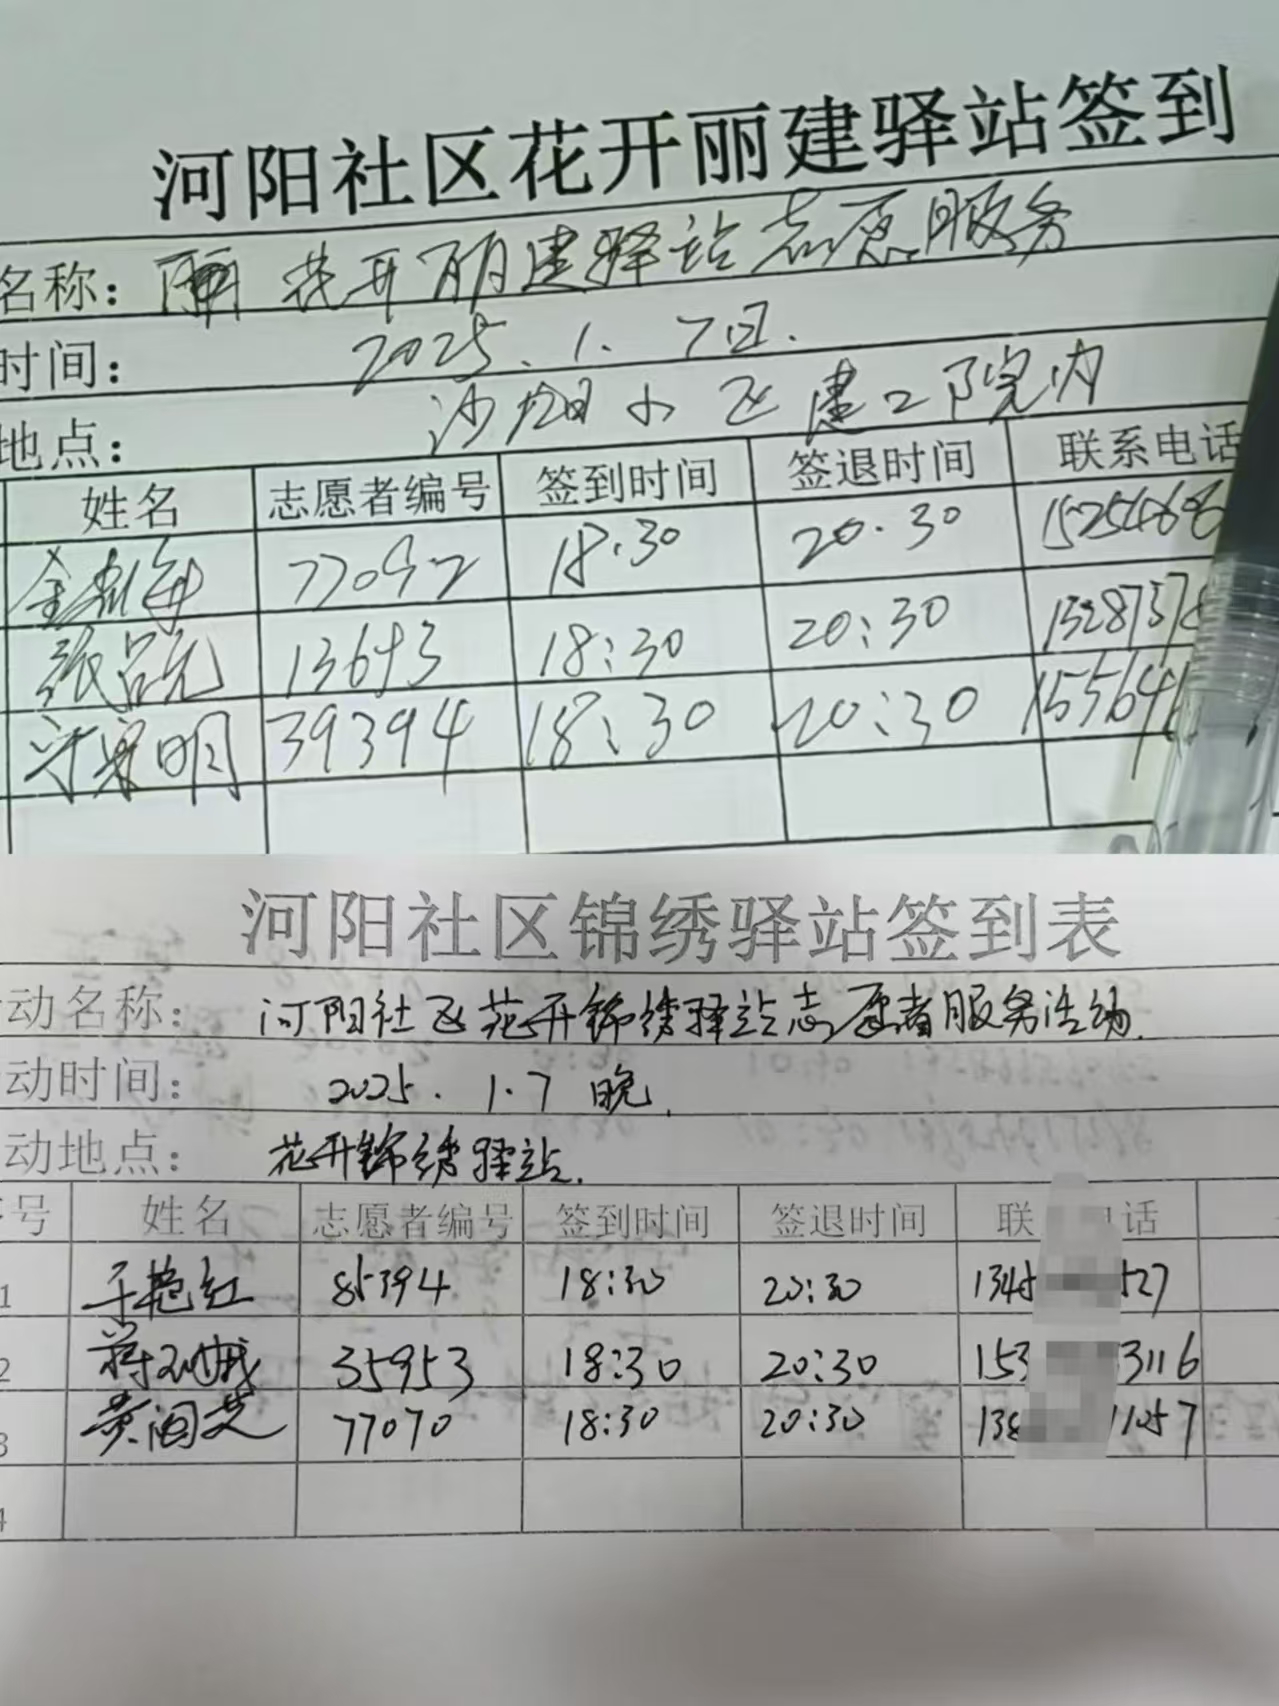 河阳社区花开丽建驿站签到
名称：花开丽建驿站志愿服务
时间：2025.1.7日.
地点：沙烟小区建工院内
姓名 志愿者编号 签到时间 签退时间 联系电话
18.30 20.30
张吕先 13693 18:30 20:30 1328757
明 39394 18:30 20:30 155641
河阳社区锦绣驿站签到表
动名称：河阳社区花开锦绣驿站志愿者服务活动.
动时间：2025.1.7晚.
动地点：花开锦绣驿站.
号 姓名 志愿者编号 签到时间 签退时间 联 话
1 于艳红 85394 18:30 20:30 1345 527
2 35953 18:30 20:30 153 3116
3 黄阁芝 77070 18:30 20:30 138 11057
4